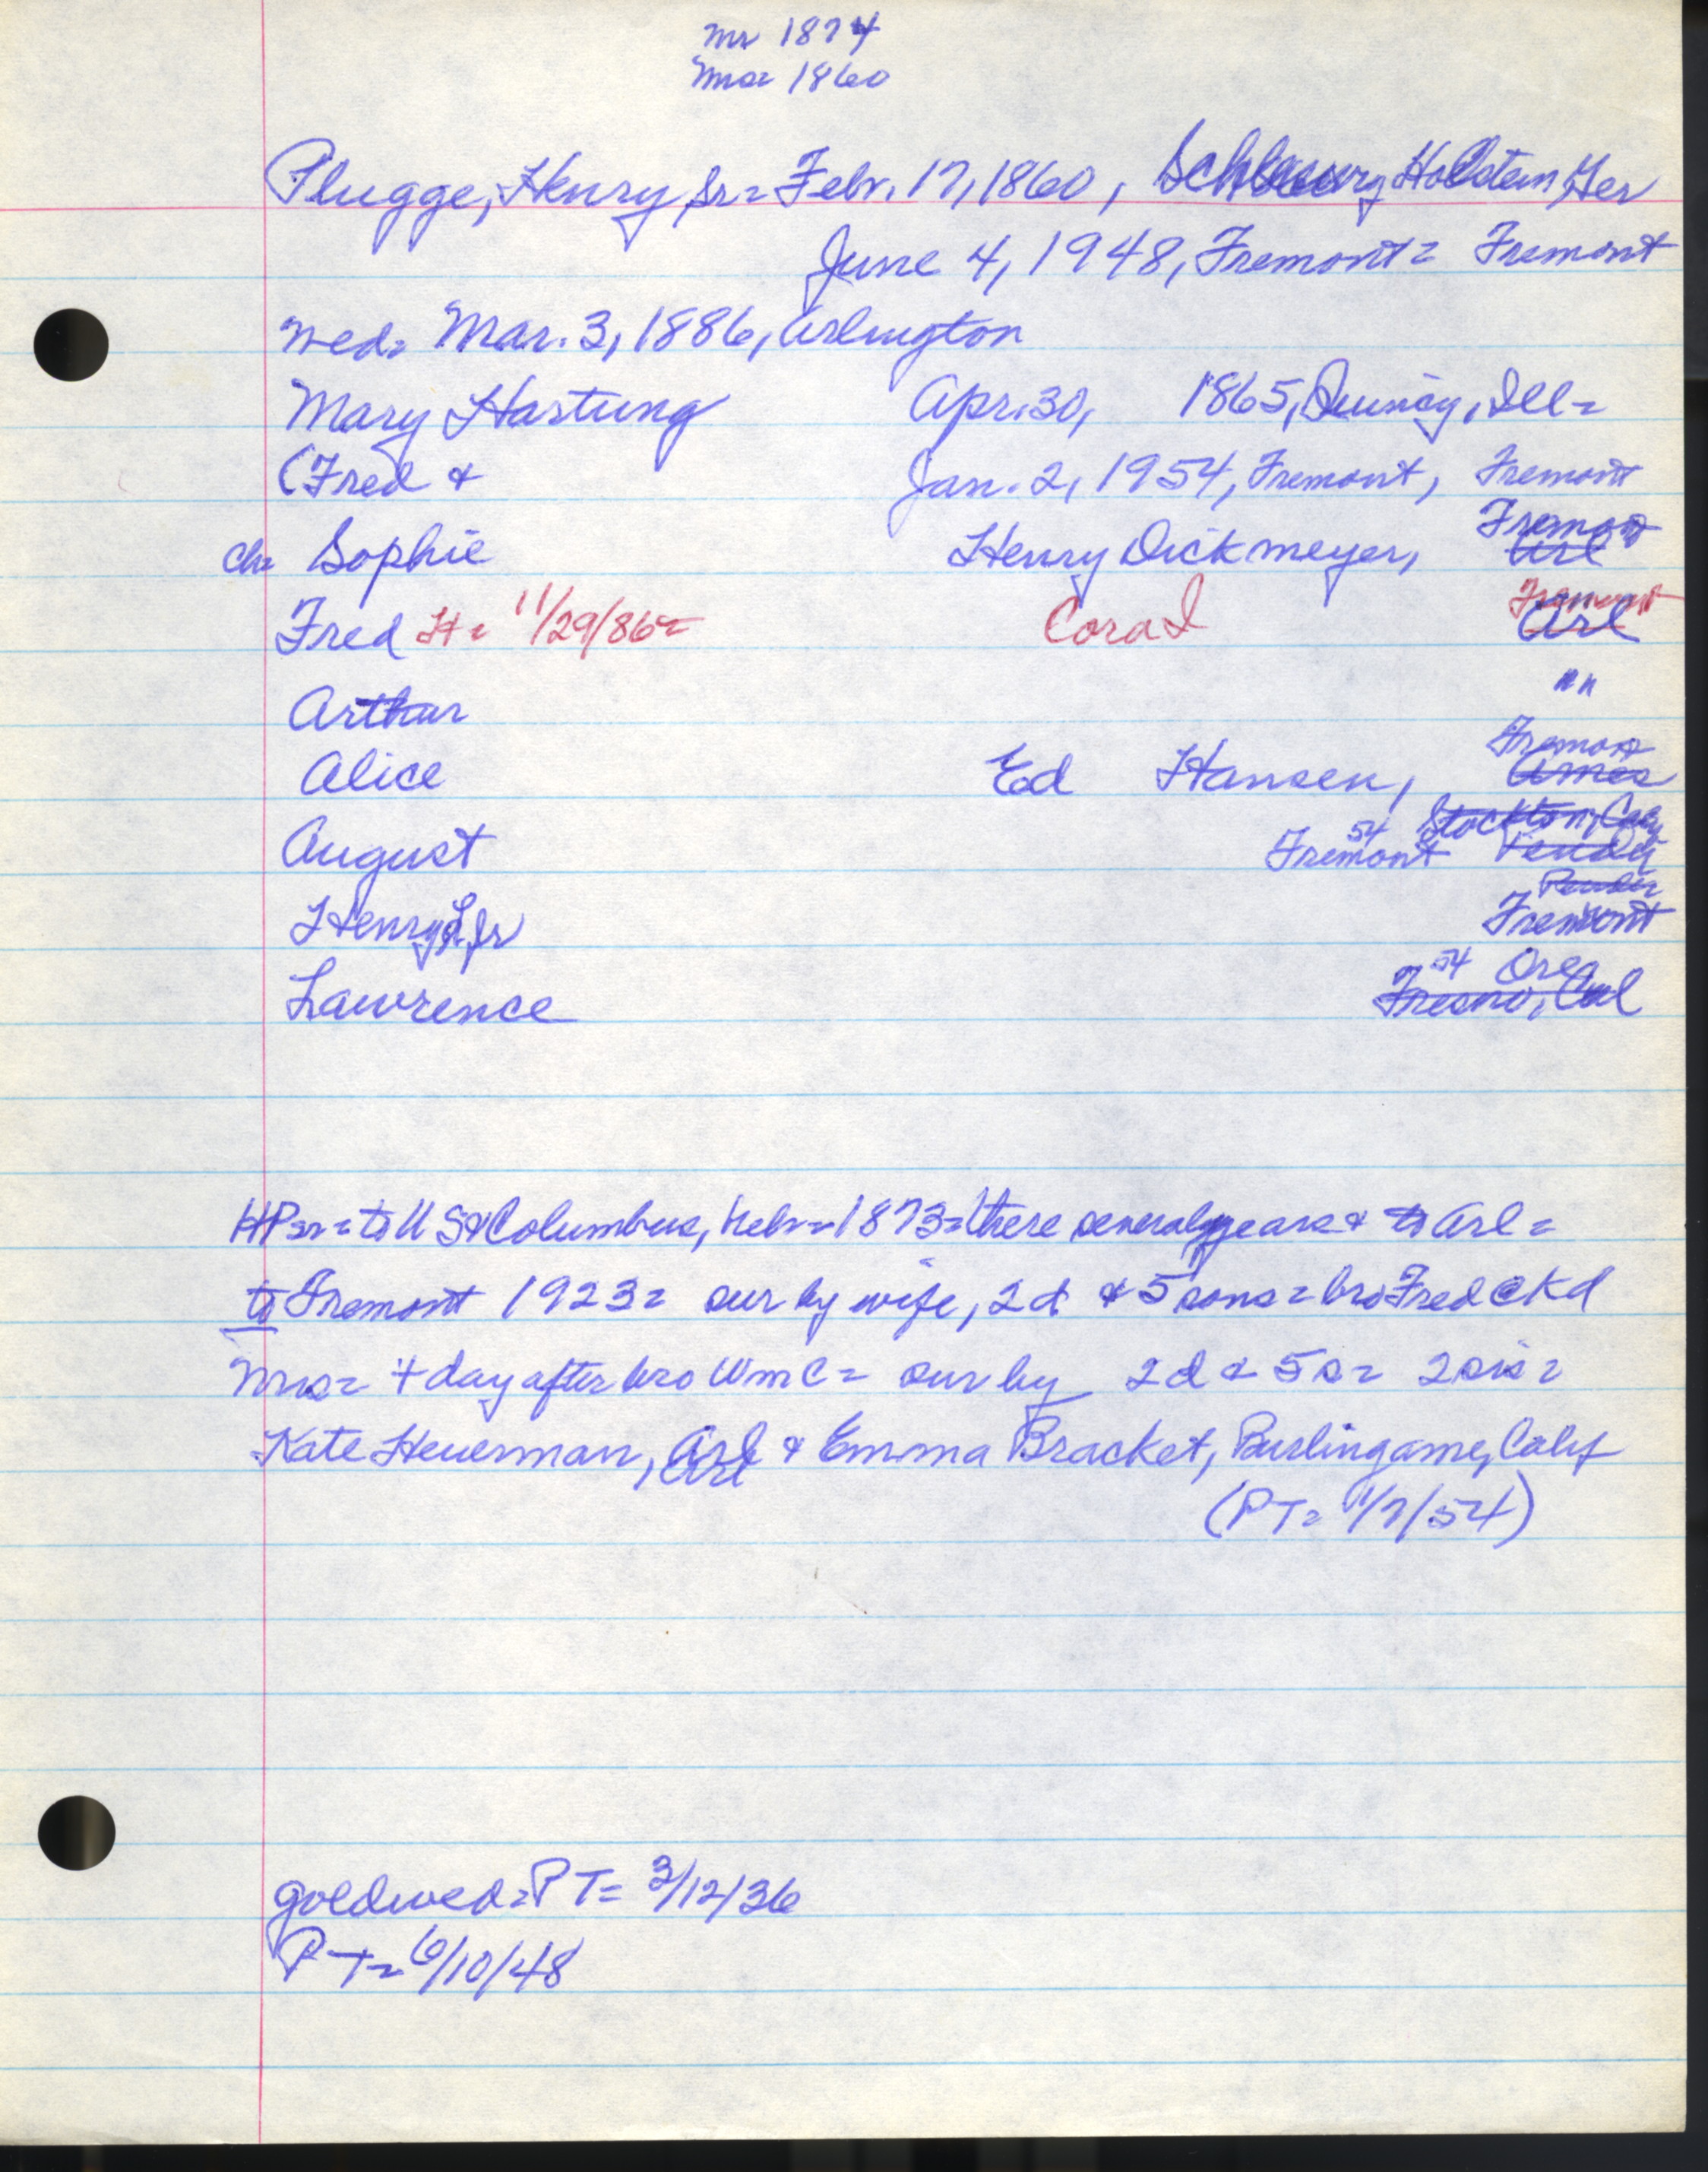 Mr 1874
Mrs= 1860
Plugge, Henry Sr= Febr. 17, 1860, Schleswig Holstein Ger
June 4, 1948, Fremont= Fremont
wed= Mar. 3, 1886, Arlington
Mary Hartung Apr. 30, 1865, Quincy, Ill=
(Fred & Jan. 2, 1954, Fremont, Fremont
Fremont
ch= Sophie Henry Dickmeyer, Arl
Fremont
Fred H= 11/29/86= Cora I Arl
Arthur " "
Fremont
Alice Ed Hansen, Ames
Stockton, Cal
August Fremont 54 Pender
Pender
Henry L Jr Fremont
54 Ore
Lawrence Fresno, Cal
HPsr= to U S & Columbus, Nebr= 1873= there several years & to Arl=
to Fremont 1923= sur by wife, 2 d & 5 sons= bro Fred
Mrs= + day after bro Wm C= sur by 2 d & 5 s= 2 sis=
Kate Heuerman, Arl Arl & Emma Bracket, Burlingame, Calif
(PT= 1/7/54)
goldwed= PT= 3/12/36
PT= 6/10/48